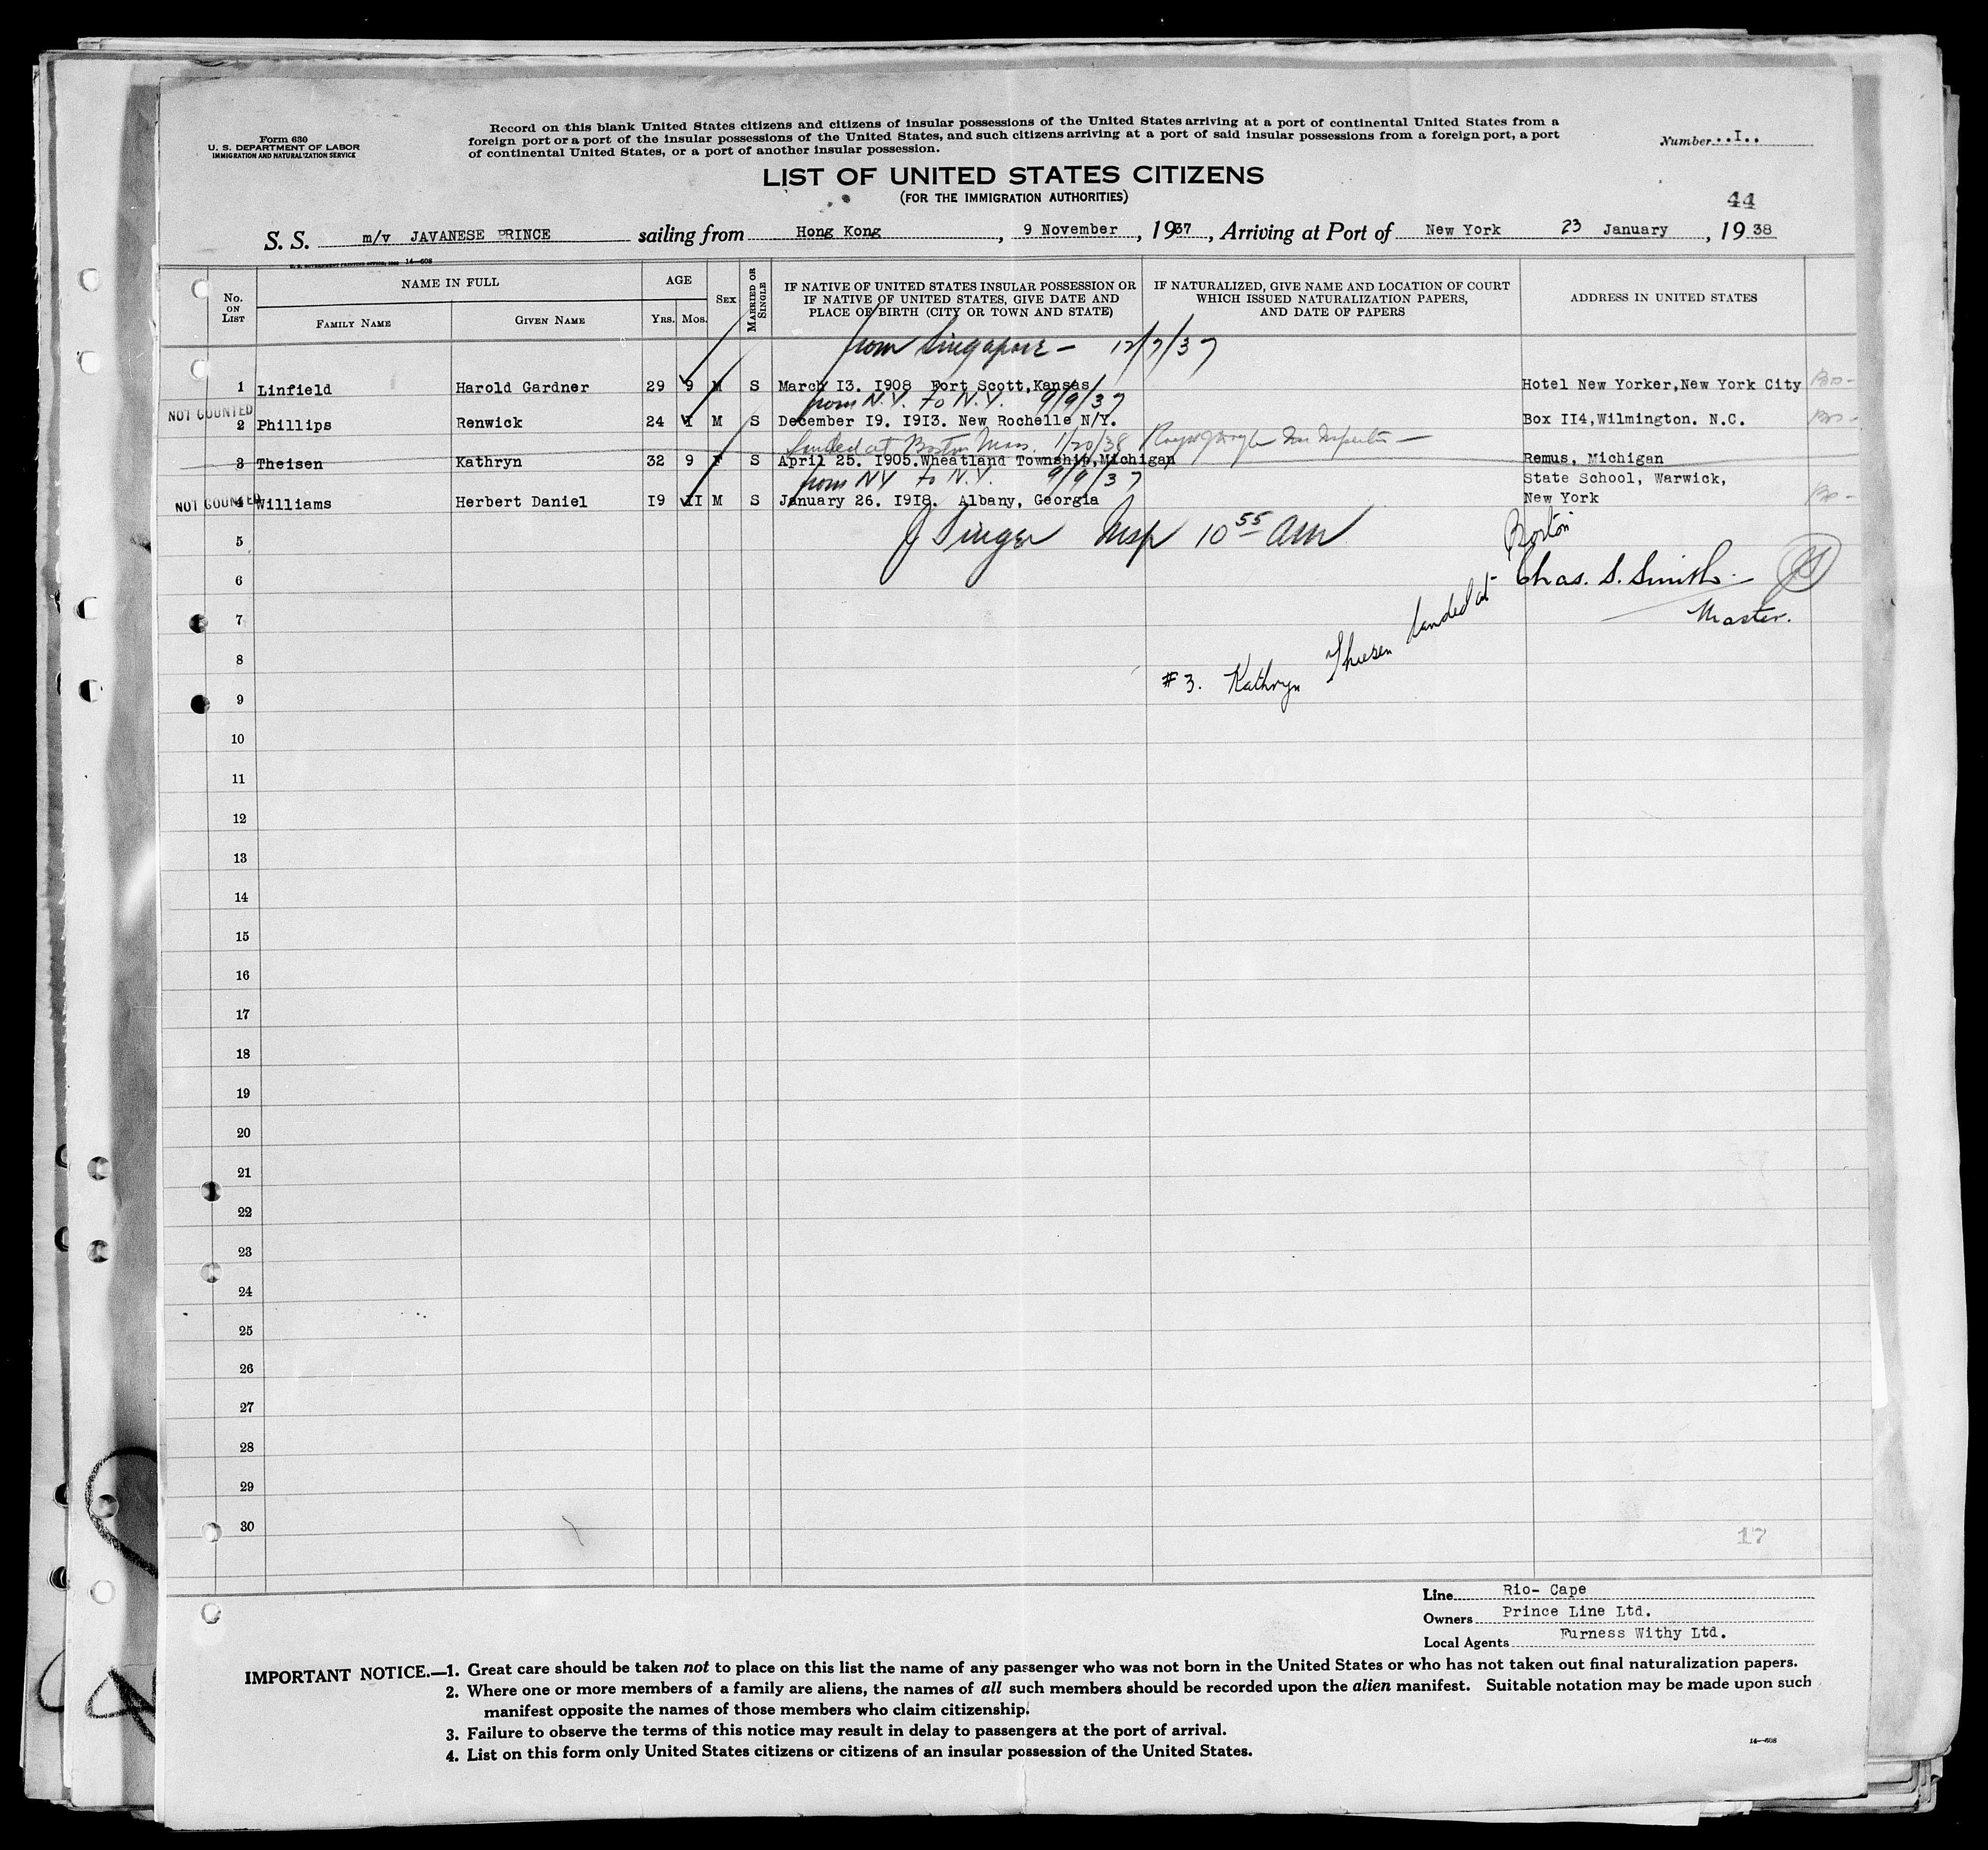 Form 630
U. S. DEPARTMENT OF LABOR
IMMIGRATION AND NATURALIZATION SERVICE
Record on this blank United States citizens and citizens of insular possessions of the United States arriving at a port of continental United States from a
foreign port or a port of the insular possessions of the United States, and such citizens arriving at a port of said insular possessions from a foreign port, a port
of continental United States, or a port of another insular possession.
Number..I..
LIST OF UNITED STATES CITIZENS
(FOR THE IMMIGRATION AUTHORITIES)
44
S. S. m/v JAVANESE PRINCE sailing from Hong Kong, 9 November, 1937, Arriving at Port of New York 23 January, 1938
14-608
No. ON LIST
NAME IN FULL
FAMILY NAME GIVEN NAME
AGE
Yrs. Mos.
SEX
MARRIED OR SINGLE
IF NATIVE OF UNITED STATES INSULAR POSSESSION OR
IF NATIVE OF UNITED STATES, GIVE DATE AND
PLACE OF BIRTH (CITY OR TOWN AND STATE)
IF NATURALIZED, GIVE NAME AND LOCATION OF COURT
WHICH ISSUED NATURALIZATION PAPERS,
AND DATE OF PAPERS
ADDRESS IN UNITED STATES
from Singapore - 12/7/37
1 Linfield Harold Gardner 29 9 M S March 13. 1908 Fort Scott,Kansas Hotel New Yorker,New York City
from N.Y. to N.Y. 9/9/37
NOT COUNTED
2 Phillips Renwick 24 I M S December 19. 1913. New Rochelle N/Y. Box II4,Wilmington. N.C.
Landed at Boston Mass. 1/20/38
3 Theisen Kathryn 32 9 F S April 25. 1905.Wheatland Township,Michigan Remus, Michigan
from NY to N.Y. 9/9/37
State School, Warwick,
NOT COUNTED
4 Williams Herbert Daniel 19 II M S January 26. 1918. Albany, Georgia New York
J Singer Insp 10 55 am
5
Boston
6
Chas. S. Smith
Master.
7
8
#3. Kathryn Thiesen landed at
9
10
11
12
13
14
15
16
17
18
19
20
21
22
23
24
25
26
27
28
29
30
17
Line Rio- Cape
Owners Prince Line Ltd.
Local Agents Furness Withy Ltd.
IMPORTANT NOTICE.—1. Great care should be taken not to place on this list the name of any passenger who was not born in the United States or who has not taken out final naturalization papers.
2. Where one or more members of a family are aliens, the names of all such members should be recorded upon the alien manifest. Suitable notation may be made upon such
manifest opposite the names of those members who claim citizenship.
3. Failure to observe the terms of this notice may result in delay to passengers at the port of arrival.
4. List on this form only United States citizens or citizens of an insular possession of the United States.
14-608